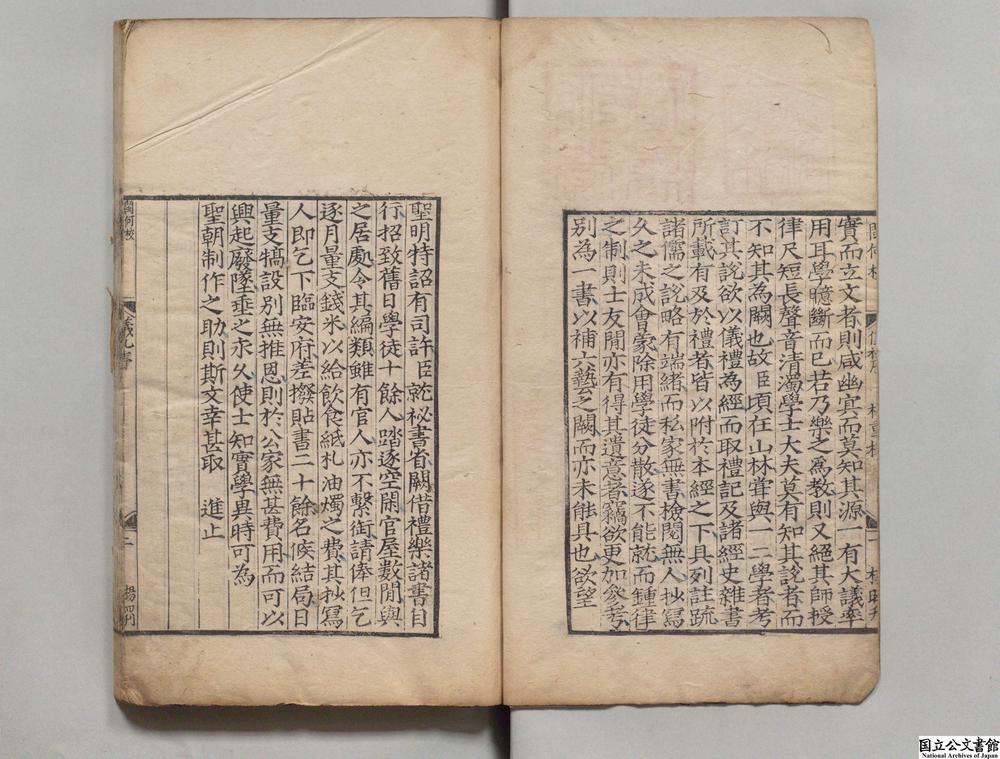 實而立文者則咸幽冥而莫知其源一有大議率
用耳學臆斷而已若乃樂之爲教則又絕其師授
律尺短長聲音清濁學士大夫莫有知其說者而
不知其為闕也故臣頃在山林甞與一二學者考
訂其說欲以儀禮為經而取禮記及諸經史雜書
所載有及於禮者皆以附於本經之下具列註疏
諸儒之說略有端緒而私家無書檢閱無人抄寫
久之未成會蒙除用學徒分散遂不能就而鍾律
之制則士友閒亦有得其遺意者竊欲更加參考
別為一書以補六藝之闕而亦未能具也欲望
聖明特詔有司許臣就祕書省關借禮樂諸書自
行招致舊日學徒十餘人踏逐空閑官屋數閒與
之居處令其編類雖有官人亦不繫銜請俸但乞
逐月量支錢米以給飲食紙札油燭之費其抄寫
人即乞下臨安府差撥貼書二十餘名候結局日
量支犒設別無推恩則於公家無甚費用而可以
興起廢墜垂之永久使士知實學異時可為
聖朝制作之助則斯文幸甚取 進止
閩何校
二
楊四刋
国立公文書館
National Archives of Japan